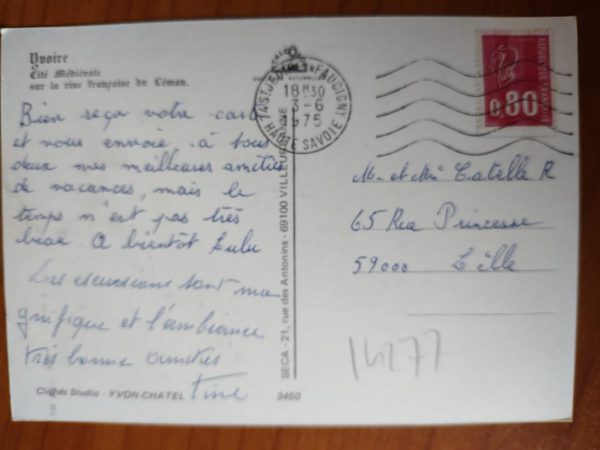 Yvoire
Cité Médiévale
sur la rive française du Léman.
Bien reçu votre carte
et vous envoie, à tous
deux mes meilleures amitiés
de vacances, mais le
temps n'est pas très
beau. A bientôt Lulu
Les excursions sont ma
gnifique et l'ambiance
très bonne amitiés
Tine
Clichés Studio - YVON-CHATEL
3450
SECA - 21, rue des Antonins - 69100 VILLEURBANNE
74 ST JEOIRE-EN-FAUCIGNY
18H30
3-6
1975
HAUTE SAVOIE
0,80
REPUBLIQUE FRANÇAISE
M. et Me Catelle R
65 Rue Princesse
59000 Lille
14277